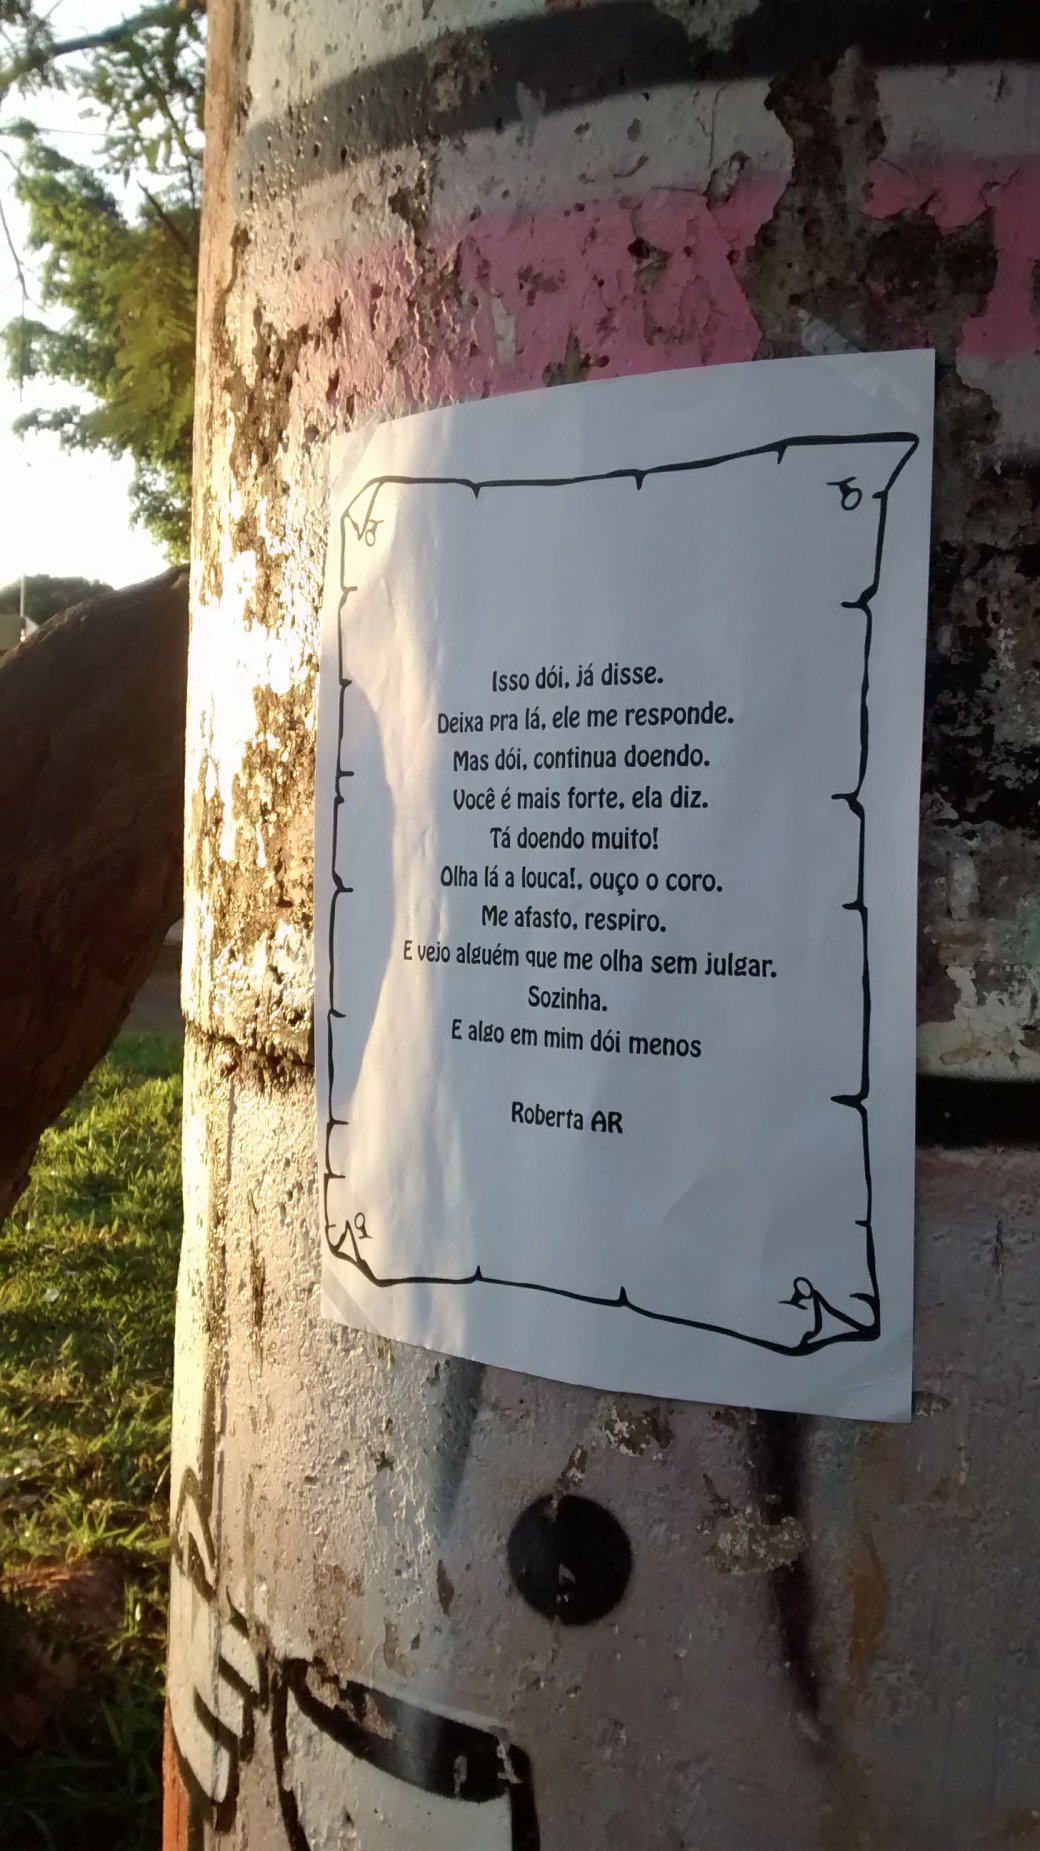 Isso dói, já disse.
Deixa pra lá, ele me responde.
Mas dói, continua doendo.
Você é mais forte, ela diz.
Tá doendo muito!
Olha lá a louca!, ouço o coro.
Me afasto, respiro.
E vejo alguém que me olha sem julgar.
Sozinha.
E algo em mim dói menos
Roberta AR